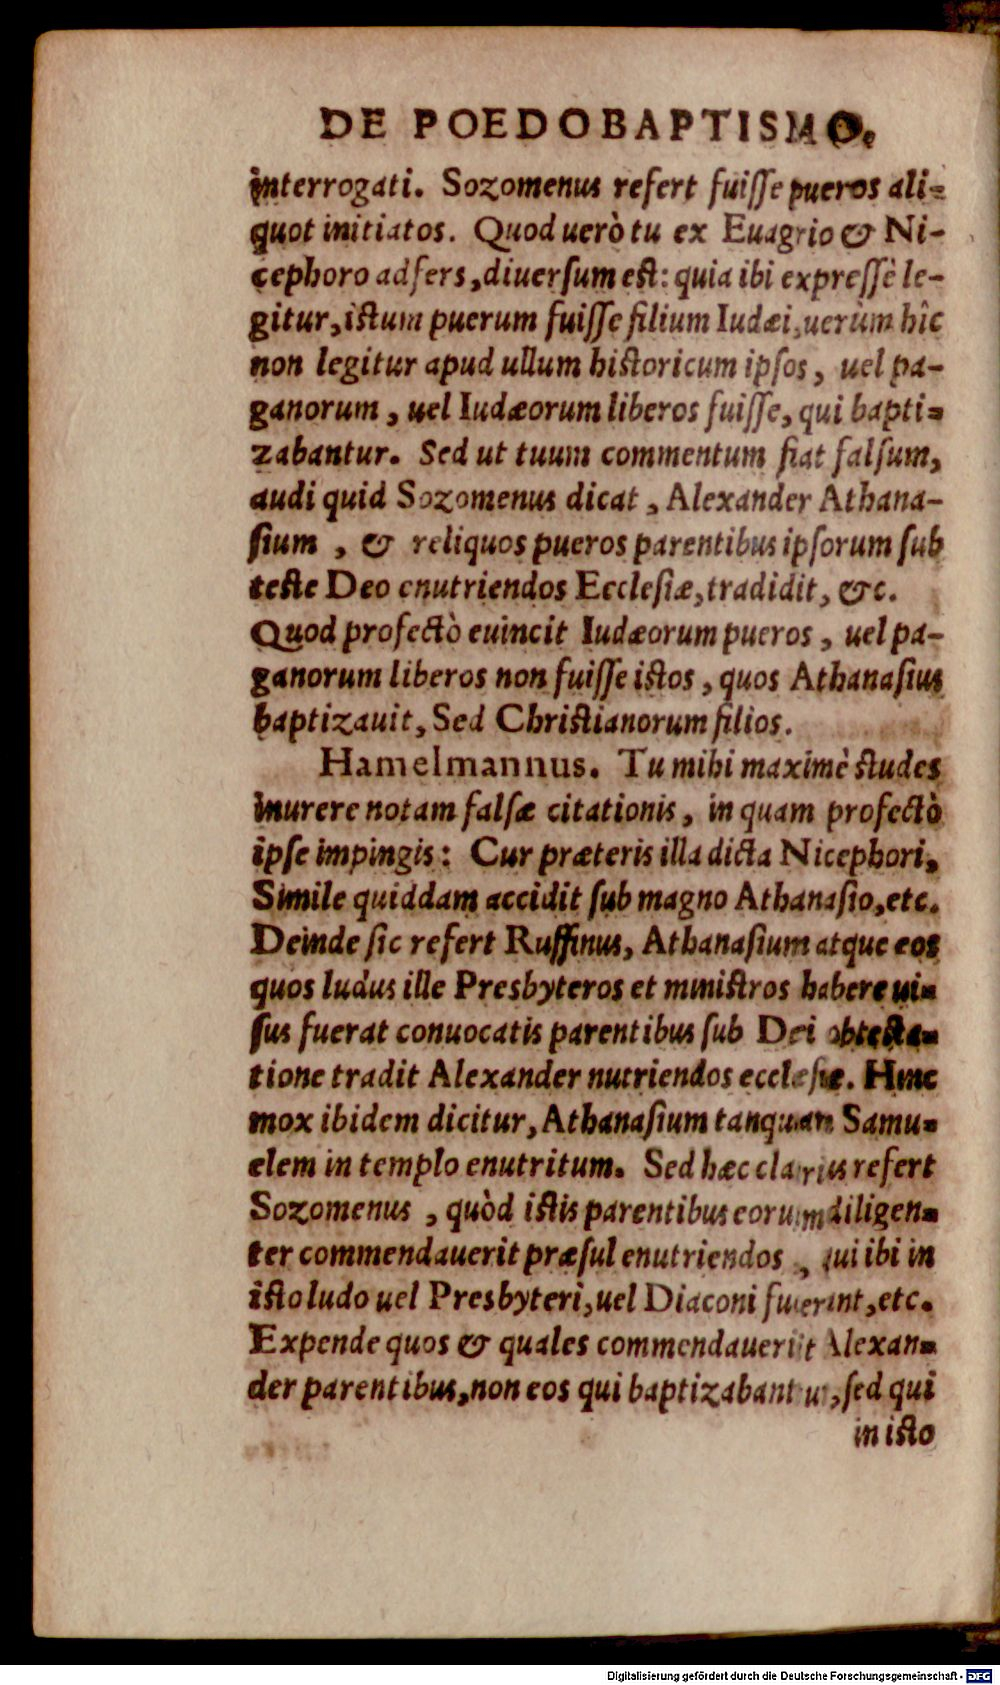 DE POEDOBAPTISMO.
interrogati. Sozomenus refert fuiſſe pueros ali-
quot initiatos. Quod uerò tu ex Euagrio & Ni-
cephoro adfers, diuerſum est: quia ibi expreſſè le-
gitur, istum puerum fuiſſe filium Iudæi, uerùm hîc
non legitur apud ullum historicum ipſos, uel pa-
ganorum, uel Iudæorum liberos fuiſſe, qui bapti-
zabantur. Sed ut tuum commentum fiat falſum,
audi quid Sozomenus dicat, Alexander Athana-
ſium, & reliquos pueros parentibus ipſorum ſub
teste Deo enutriendos Eccleſiæ, tradidit, &c.
Quod profectò euincit Iudæorum pueros, uel pa-
ganorum liberos non fuiſſe istos, quos Athanaſius
baptizauit, Sed Christianorum filios.
Hamelmannus. Tu mihi maximè studes
inurere notam falſæ citationis, in quam profectò
ipſe impingis: Cur præteris illa dicta Nicephori,
Simile quiddam accidit ſub magno Athanaſio, etc.
Deinde ſic refert Ruffinus, Athanaſium atque eos
quos ludus ille Presbyteros et ministros habere ui-
ſus fuerat conuocatis parentibus ſub Dei obtesta-
tione tradit Alexander nutriendos eccleſiæ. Hinc
mox ibidem dicitur, Athanaſium tanquam Samu-
elem in templo enutritum. Sed hæc clarius refert
Sozomenus, quòd istis parentibus eorum diligen-
ter commendauerit præſul enutriendos, qui ibi in
isto ludo uel Presbyteri, uel Diaconi fuerint, etc.
Expende quos & quales commendauerit Alexan-
der parentibus, non eos qui baptizabantur, ſed qui
in isto
Digitalisierung gefördert durch die Deutsche Forschungsgemeinschaft - DFG